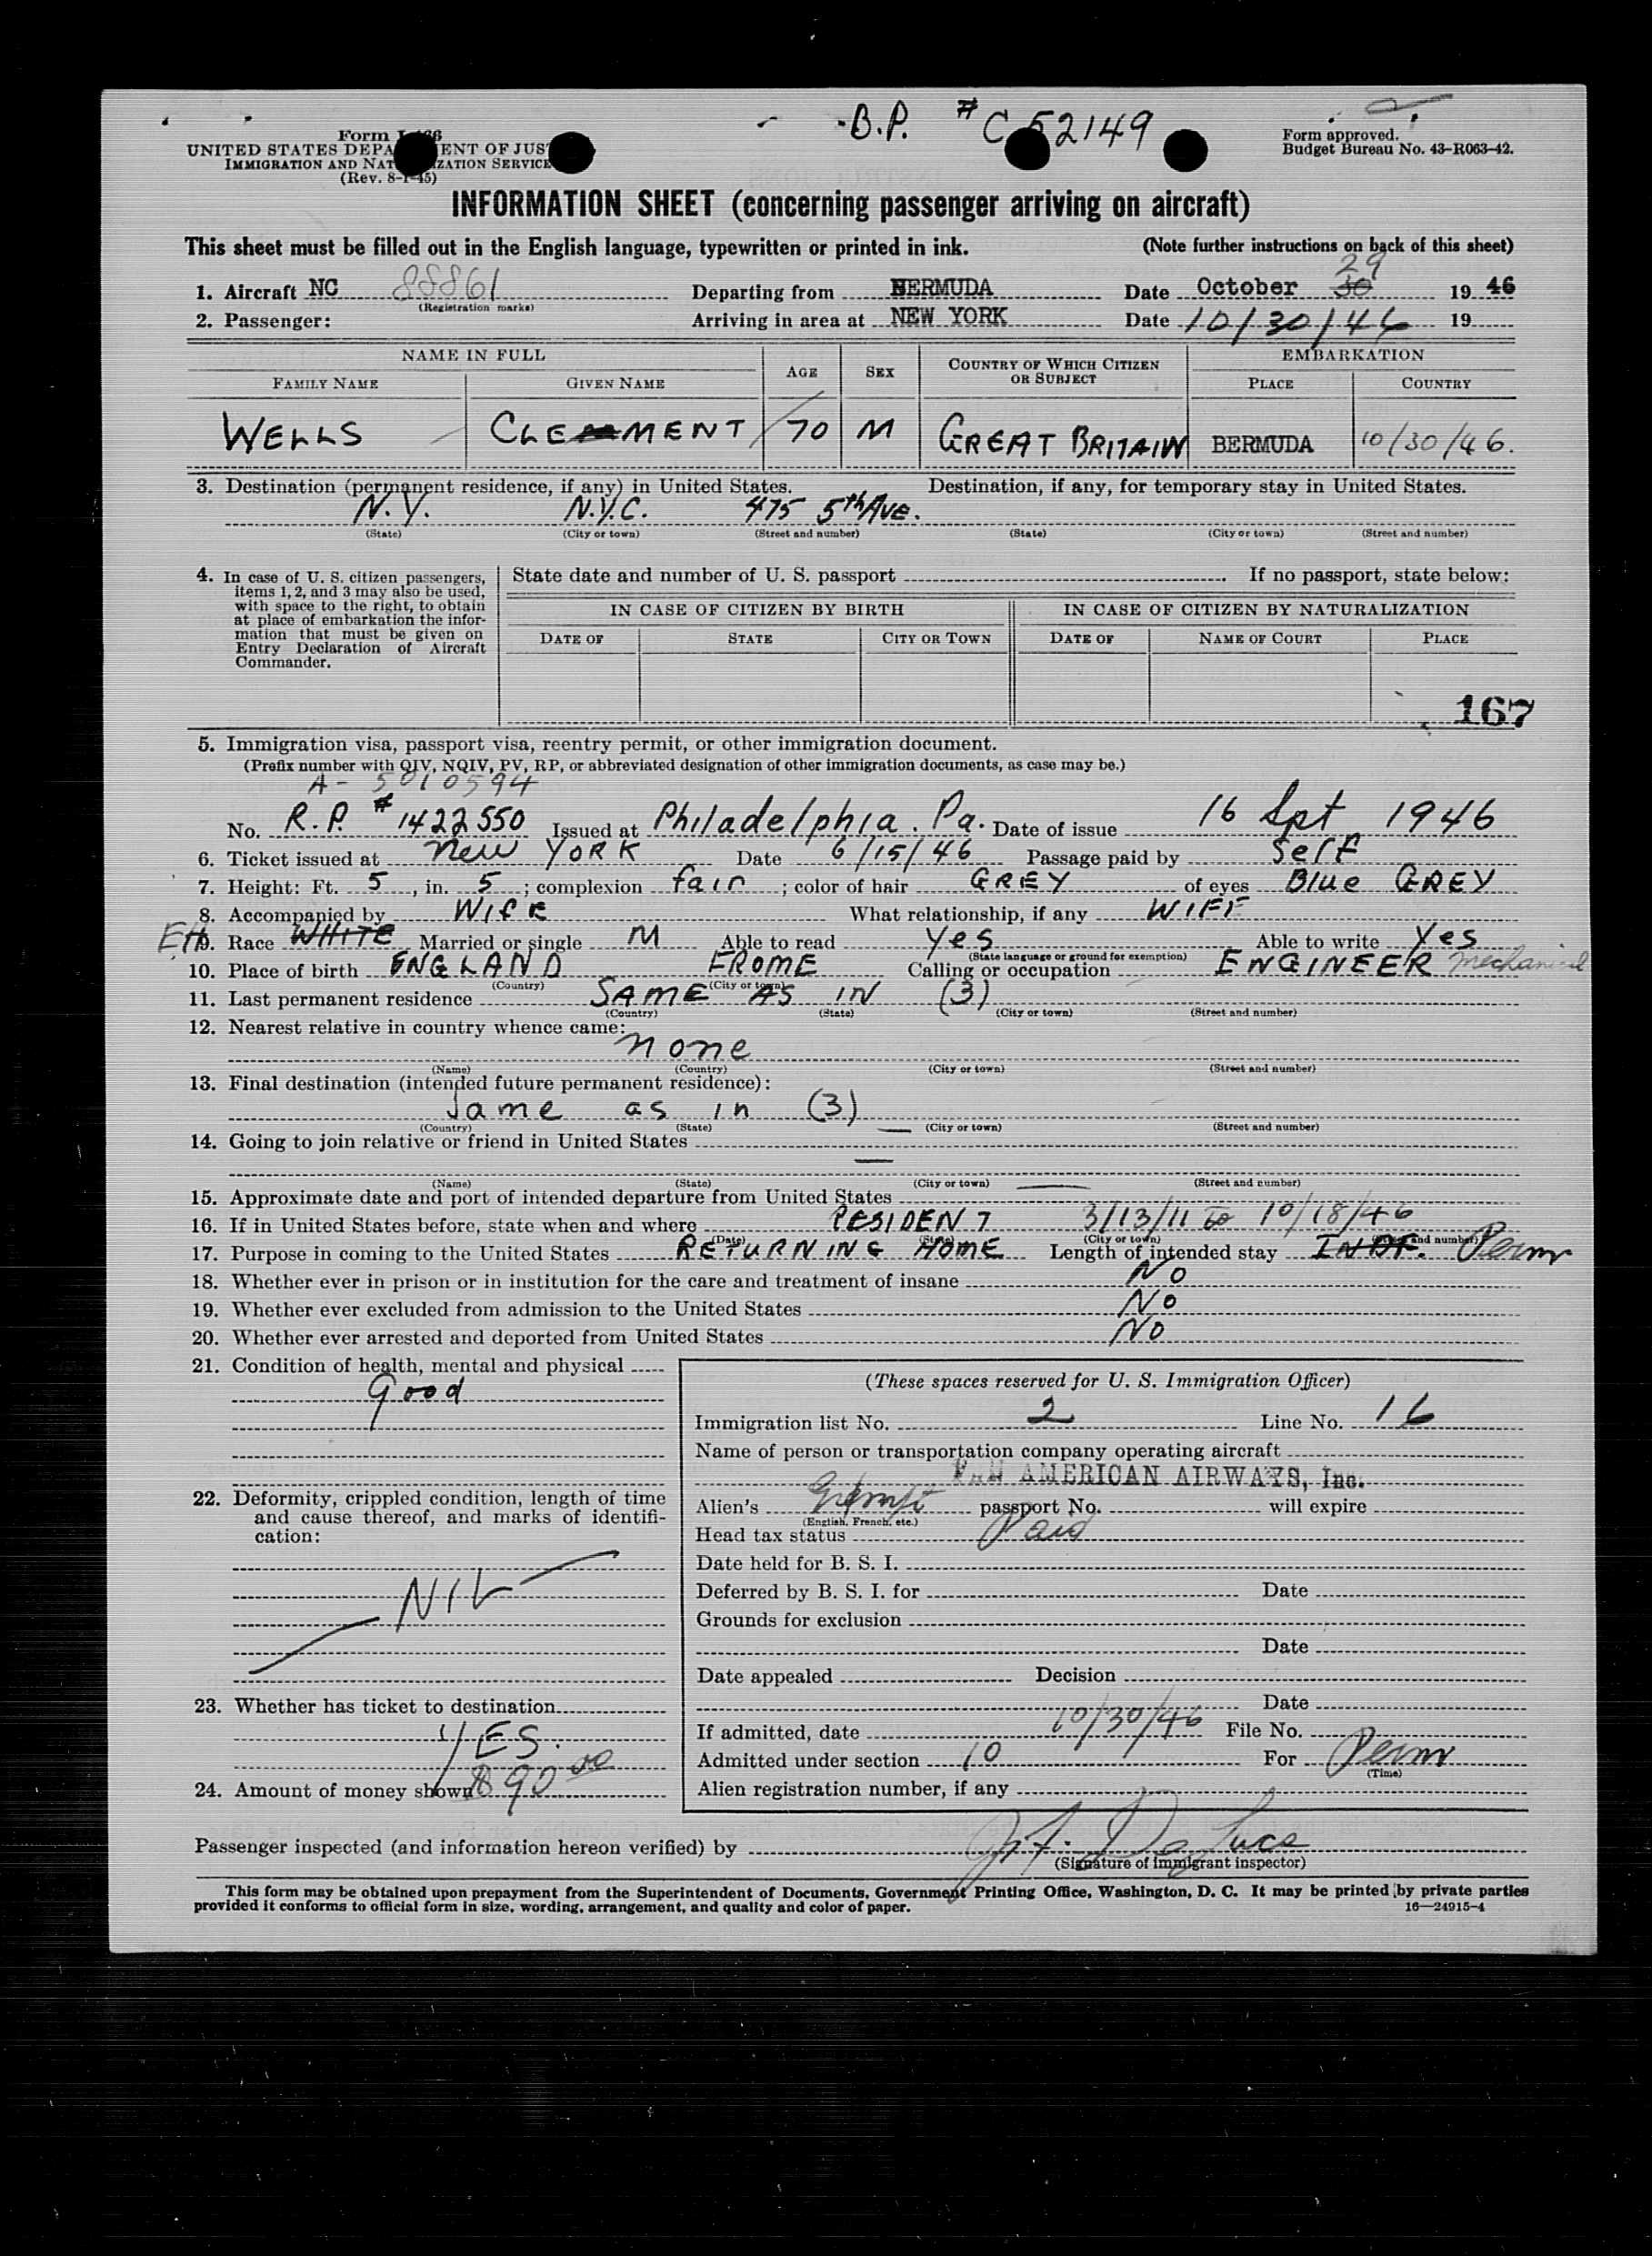 B.P. #C 52149
Form approved.
Budget Bureau No. 43-R063-42.
Form
UNITED STATES DEPA ENT OF JUS
IMMIGRATION AND NAT ZATION SERVICE
(Rev. 8-1-45)
INFORMATION SHEET (concerning passenger arriving on aircraft)
This sheet must be filled out in the English language, typewritten or printed in ink. (Note further instructions on back of this sheet)
29
1. Aircraft NC 88861 Departing from BERMUDA Date October 30 19 46
(Registration marks)
2. Passenger: Arriving in area at NEW YORK Date 10/30/46 19
NAME IN FULL AGE SEX COUNTRY OF WHICH CITIZEN OR SUBJECT EMBARKATION
FAMILY NAME GIVEN NAME PLACE COUNTRY
WELLS CLEMENT 70 M GREAT BRITAIN BERMUDA 10/30/46.
3. Destination (permanent residence, if any) in United States. Destination, if any, for temporary stay in United States.
N.Y. N.Y.C. 475 5th AVE.
(State) (City or town) (Street and number) (State) (City or town) (Street and number)
4. In case of U. S. citizen passengers, items 1, 2, and 3 may also be used, with space to the right, to obtain at place of embarkation the information that must be given on Entry Declaration of Aircraft Commander.
State date and number of U. S. passport . If no passport, state below:
IN CASE OF CITIZEN BY BIRTH IN CASE OF CITIZEN BY NATURALIZATION
DATE OF STATE CITY OR TOWN DATE OF NAME OF COURT PLACE
167
5. Immigration visa, passport visa, reentry permit, or other immigration document.
(Prefix number with QIV, NQIV, PV, RP, or abbreviated designation of other immigration documents, as case may be.)
A- 5010594
No. R.P. # 1422550 Issued at Philadelphia. Pa. Date of issue 16 Spt 1946
6. Ticket issued at New YORK Date 6/15/46 Passage paid by Self
7. Height: Ft. 5, in. 5; complexion fair; color of hair GREY of eyes Blue GREY
8. Accompanied by WIFE What relationship, if any WIFE
Eth. Race WHITE Married or single M Able to read Yes Able to write Yes
(State language or ground for exemption)
10. Place of birth ENGLAND FROME Calling or occupation ENGINEER Mechanical
(Country) (City or town)
11. Last permanent residence SAME AS IN (3)
(Country) (State) (City or town) (Street and number)
12. Nearest relative in country whence came:
none
(Name) (Country) (City or town) (Street and number)
13. Final destination (intended future permanent residence):
Same as in (3)
(Country) (State) (City or town) (Street and number)
14. Going to join relative or friend in United States
(Name) (State) (City or town) (Street and number)
15. Approximate date and port of intended departure from United States
16. If in United States before, state when and where RESIDENT 3/13/11 to 10/18/46
(Date) (State) (City or town) (Street and number)
17. Purpose in coming to the United States RETURNING HOME Length of intended stay INDF. Perm
18. Whether ever in prison or in institution for the care and treatment of insane No
19. Whether ever excluded from admission to the United States No
20. Whether ever arrested and deported from United States No
21. Condition of health, mental and physical
Good
22. Deformity, crippled condition, length of time and cause thereof, and marks of identification:
NIL
23. Whether has ticket to destination
YES.
24. Amount of money shown $90.00
(These spaces reserved for U. S. Immigration Officer)
Immigration list No. 2 Line No. 16
Name of person or transportation company operating aircraft
PAN AMERICAN AIRWAYS, Inc.
Alien's Exempt passport No. will expire
(English, French, etc.)
Head tax status Paid
Date held for B. S. I.
Deferred by B. S. I. for Date
Grounds for exclusion
Date
Date appealed Decision
Date
If admitted, date 10/30/46 File No.
Admitted under section 10 For Perm
(Time)
Alien registration number, if any
Passenger inspected (and information hereon verified) by
(Signature of immigrant inspector)
This form may be obtained upon prepayment from the Superintendent of Documents, Government Printing Office, Washington, D. C. It may be printed by private parties
provided it conforms to official form in size, wording, arrangement, and quality and color of paper. 16—24915-4